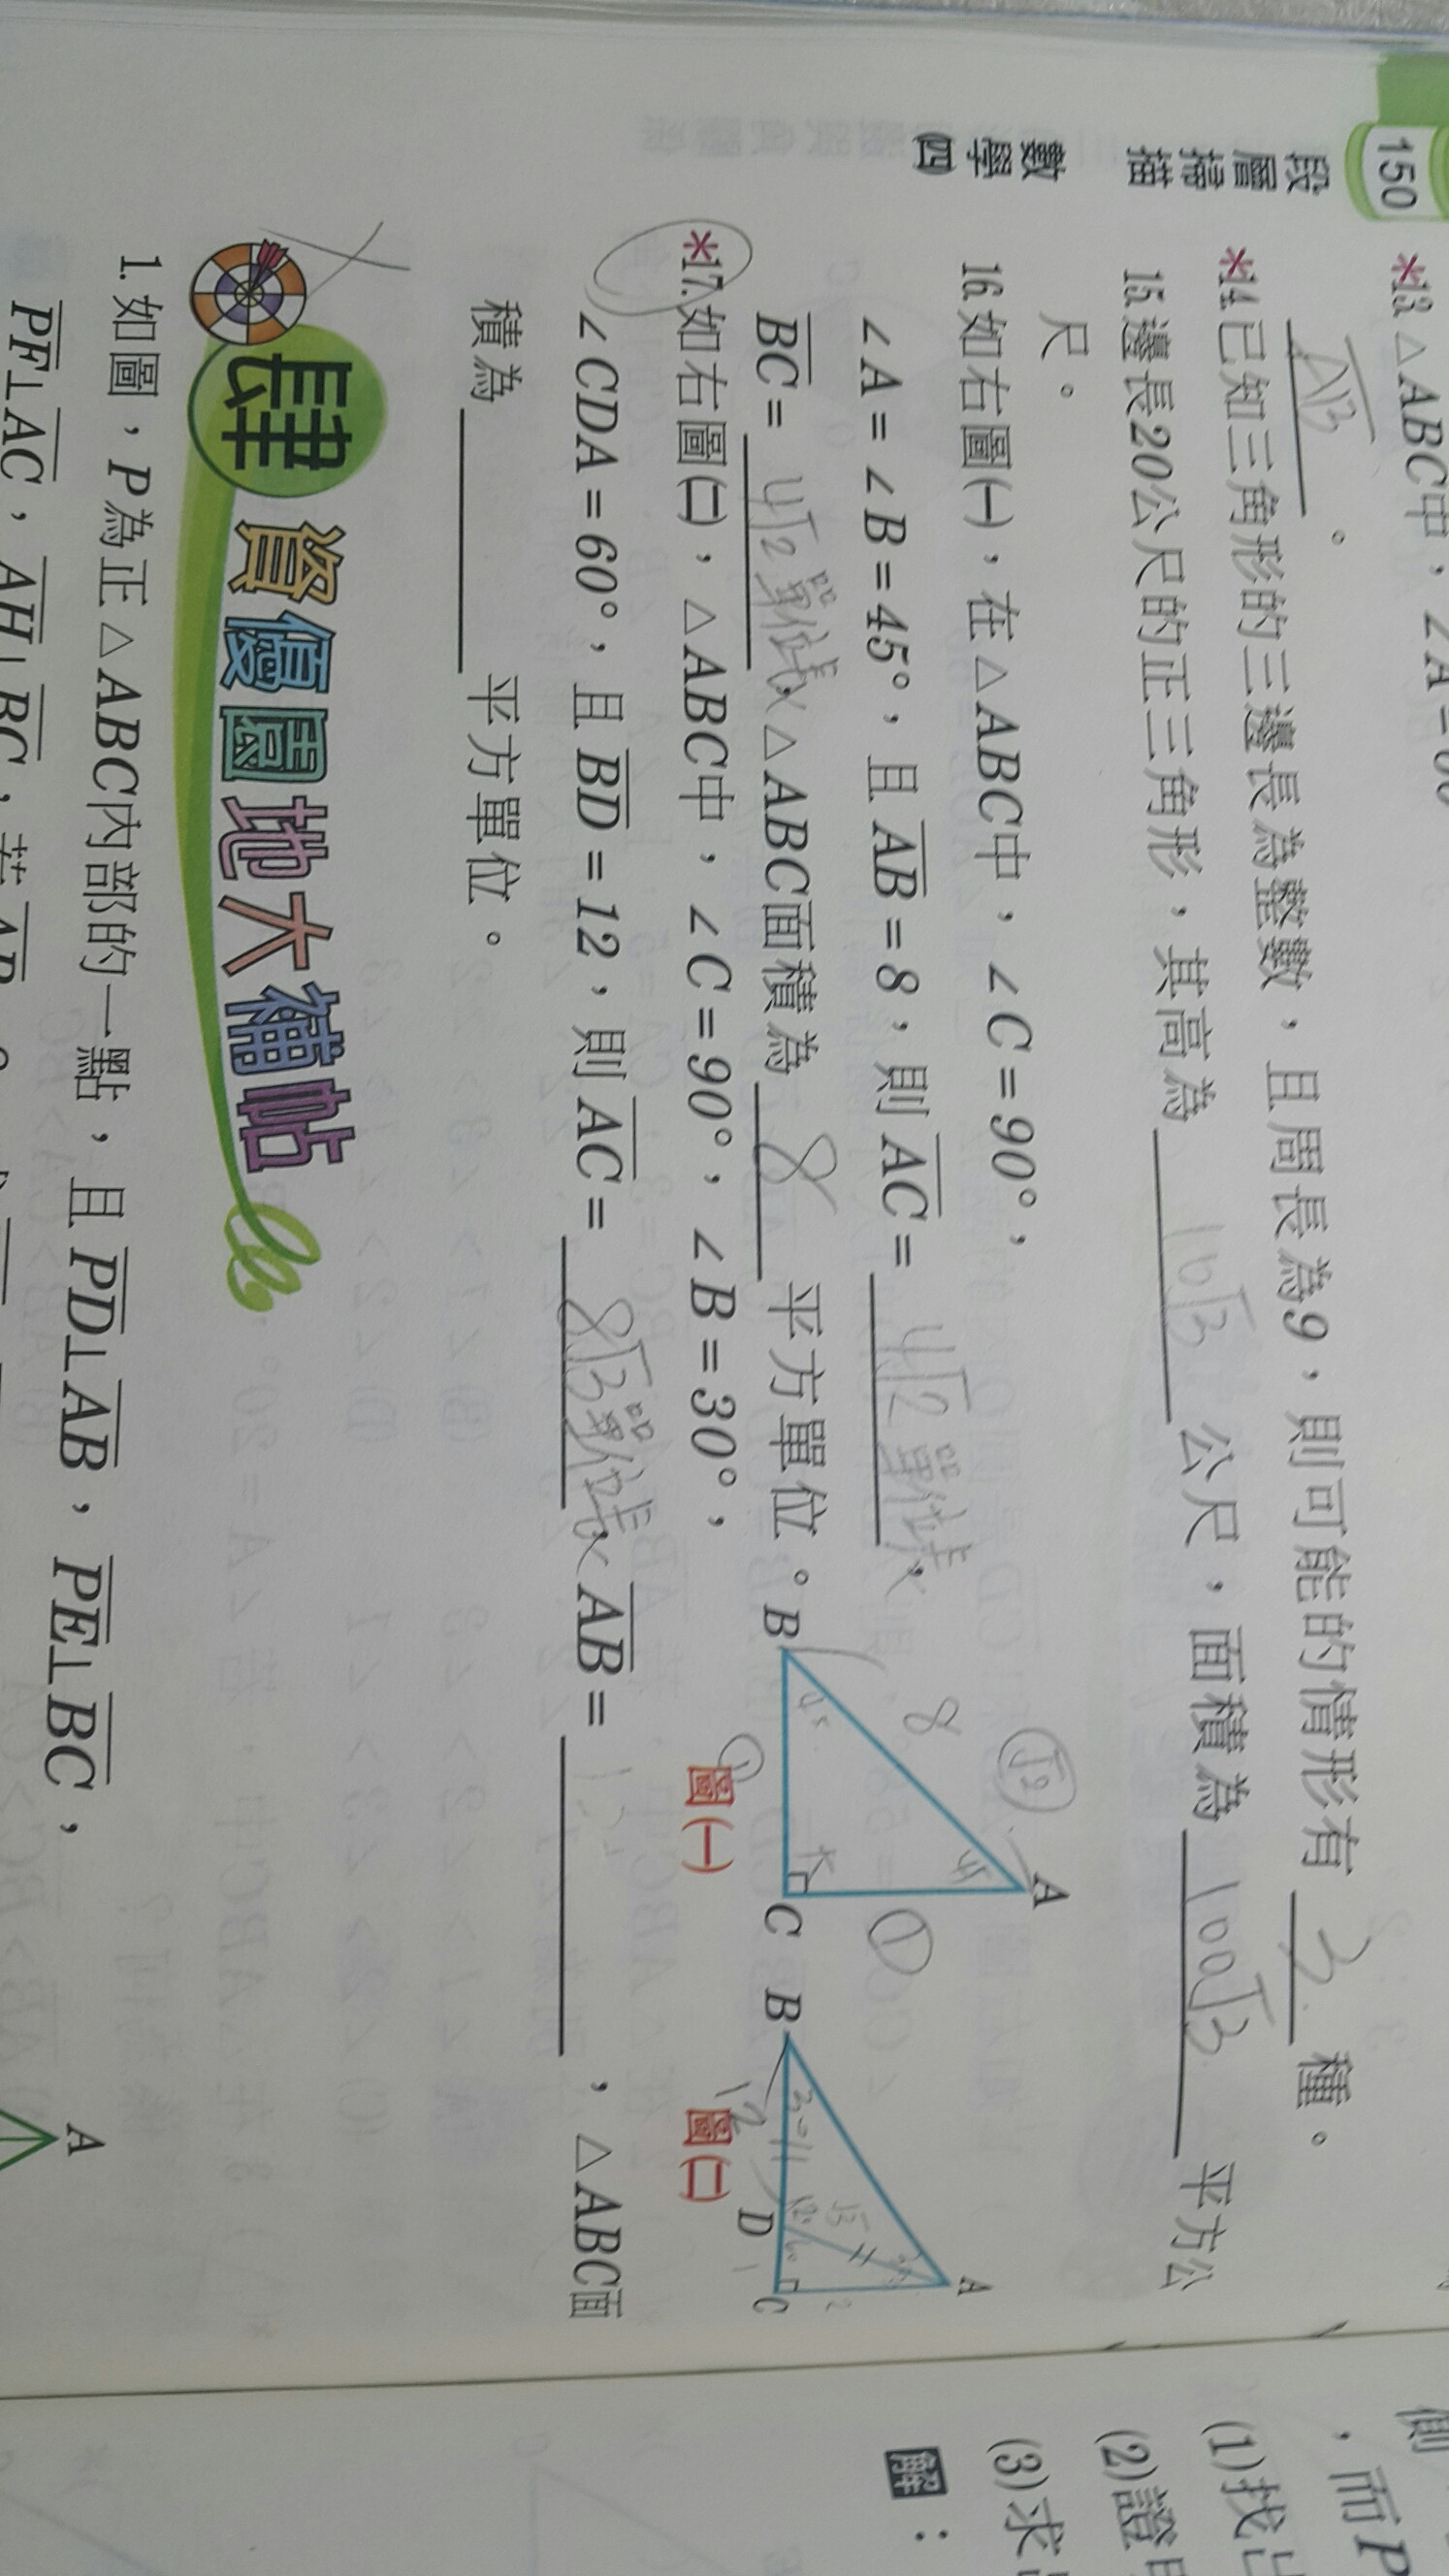 150
段層掃描
數學(四)
*13. △ABC中，∠A=
。
*14.已知三角形的三邊長為整數，且周長為9，則可能的情形有 3 種。
15.邊長20公尺的正三角形，其高為 10√3 公尺，面積為 100√3 平方公
尺。
16.如右圖(一)，在△ABC中，∠C=90°，
∠A=∠B=45°，且AB=8，則AC= 4√2 單位長，
BC= 4√2 單位長，△ABC面積為 8 平方單位。
*17.如右圖(二)，△ABC中，∠C=90°，∠B=30°，
∠CDA=60°，且BD=12，則AC= 8√3單位長，AB= ，△ABC面
積為 平方單位。
B
45
8
√2
45
A
C
1
1
圖(一)
B
30
12
120
√3
60
D
A
2
1
C
圖(二)
肆 資優園地大補帖
1.如圖，P為正△ABC內部的一點，且PD⊥AB，PE⊥BC，
PF⊥AC，AH⊥BC，若AB
A
側
，而P
(1)找出
(2)證明
(3)求
解：